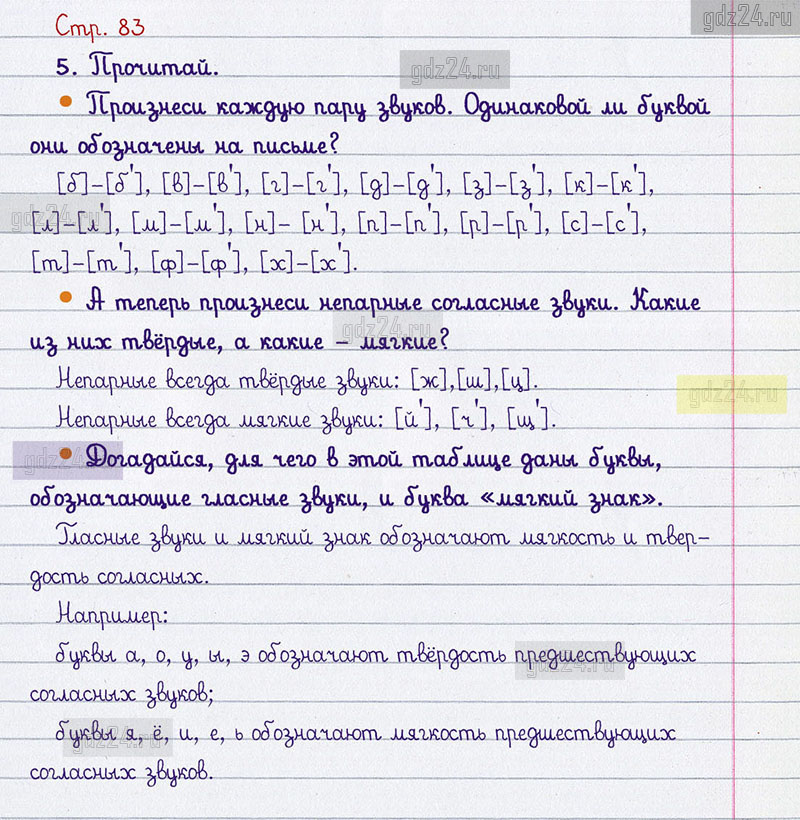 gdz24.ru
Стр. 83
5. Прочитай.
gdz24.ru
• Произнеси каждую пару звуков. Одинаковой ли буквой
они обозначены на письме?
[б]-[б'], [в]-[в'], [г]-[г'], [д]-[д'], [з]-[з'], [к]-[к'],
gdz24.ru
[л]-[л'], [м]-[м'], [н]- [н'], [п]-[п'], [р]-[р'], [с]-[с'],
[т]-[т'], [ф]-[ф'], [х]-[х'].
• А теперь произнеси непарные согласные звуки. Какие
gdz24.ru
из них твёрдые, а какие – мягкие?
Непарные всегда твёрдые звуки: [ж],[ш],[ц].
gdz24.ru
Непарные всегда мягкие звуки: [й'], [ч'], [щ'].
gdz24.ru
• Догадайся, для чего в этой таблице даны буквы,
обозначающие гласные звуки, и буква «мягкий знак».
Гласные звуки и мягкий знак обозначают мягкость и твер-
дость согласных.
Например:
буквы а, о, у, ы, э обозначают твёрдость предшествующих
gdz24.ru
согласных звуков;
буквы я, ё, и, е, ь обозначают мягкость предшествующих
gdz24.ru
согласных звуков.